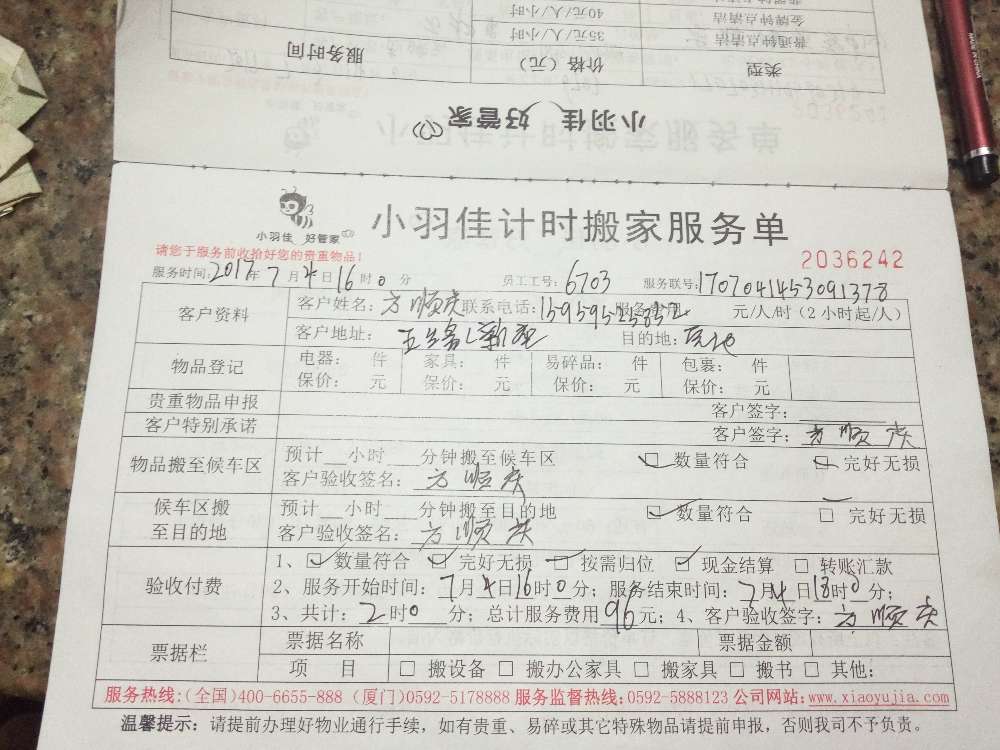 40元/人/小时
金牌钟点清洁
35元/人/小时
普通钟点清洁
服务时间
价格(元)
类型
小羽佳 好管家
小羽佳 好管家
小羽佳计时搬家服务单
请您于服务前收拾好您的贵重物品!
2036242
服务时间:2017年7月4日16时0分 员工工号:6703 服务联号:1707041453091378
客户资料
客户姓名:方顺庆 联系电话: 服务费用 元/人/时(2小时起/人)
客户地址: 目的地:
物品登记
电器: 件 家具: 件 易碎品: 件 包裹: 件
保价: 元 保价: 元 保价: 元 保价: 元
贵重物品申报 客户签字:
客户特别承诺 客户签字:方顺庆
物品搬至候车区
预计 小时 分钟搬至候车区 数量符合 完好无损
客户验收签名:方顺庆
候车区搬至目的地
预计 小时 分钟搬至目的地 数量符合 完好无损
客户验收签名:方顺庆
验收付费
1、数量符合 完好无损 按需归位 现金结算 转账汇款
2、服务开始时间:7月4日16时0分;服务结束时间:7月4日18时0分;
3、共计:2时0分;总计服务费用96元;4、客户验收签字:方顺庆
票据栏
票据名称 票据金额
项 目 搬设备 搬办公家具 搬家具 搬书 其他:
服务热线:(全国)400-6655-888 (厦门)0592-5178888 服务监督热线:0592-5888123 公司网站:www.xiaoyujia.com
温馨提示:请提前办理好物业通行手续,如有贵重、易碎或其它特殊物品请提前申报,否则我司不予负责。